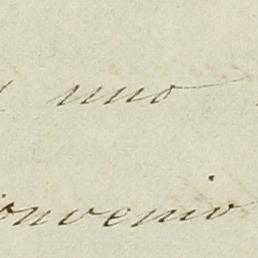 uno
onvenio